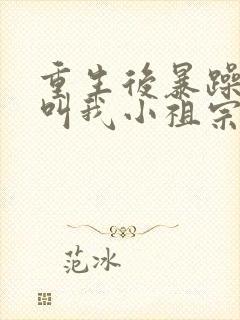 重生後暴躁
叫我小祖宗
范冰